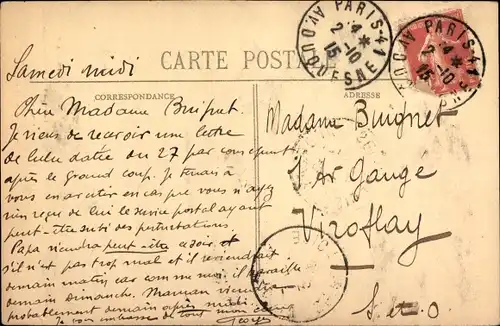 PARIS-41
AV. DUQUESNE
2 -10
15
PARIS-41
2 -10
15
CARTE POSTALE
CORRESPONDANCE
ADRESSE
Samedi midi
Chère Madame Buignet
Je viens de recevoir une lettre
de Lulu datée du 27 par conséquent
après le Grand coup. Je tenais à
vous en avertir en cas que vous n'ayez
rien reçu de lui le service postal ayant
peut-être subi des perturbations.
Papa viendra peut-être ce soir et
s'il n'est pas trop mal et il reviendrait
demain matin car comme moi il travaille
demain Dimanche. Maman viendra
probablement demain après midi.
Je vous embrasse de tout mon cœur
Georges
Madame Buignet
Av Gaugé
Viroflay
S et O